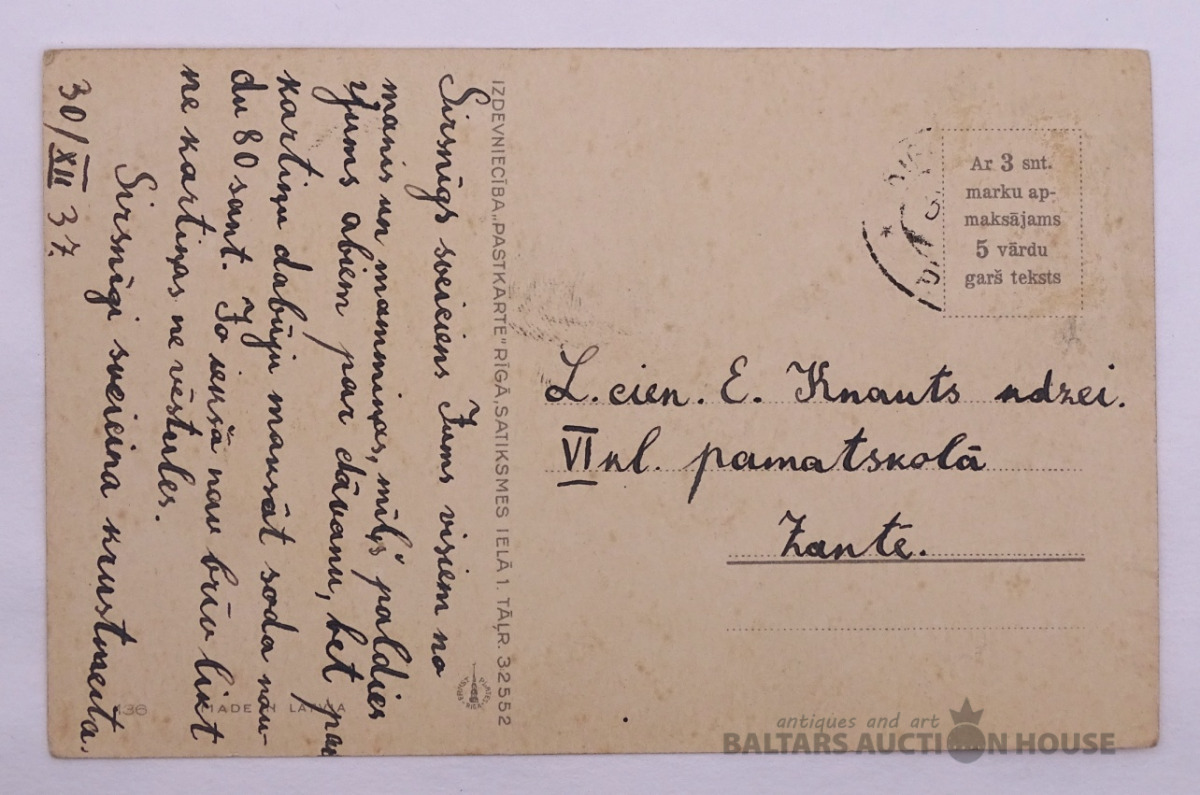 Sirsnīgs sveiciens Jums visiem no
manis un mammiņas, mīļš paldies
Jums abiem par dāvanu, bet par
kartiņu dabūju maksāt soda nau-
du 80 sant. Jo iekšā nav brīv likt
ne kartiņas ne vēstules.
Sirsnīgi sveicina krustmeita.
30/XII 37.
IZDEVNIECĪBA „PASTKARTE” RĪGĀ, SATIKSMES IELĀ 1. TĀĻR. 32552
Ar 3 snt.
marku ap-
maksājams
5 vārdu
garš teksts
L. cien. E. Knauts kdzei.
VI kl. pamatskolā
Zantē.
MADE LATVIA
antiques and art
BALTARS AUCTION HOUSE